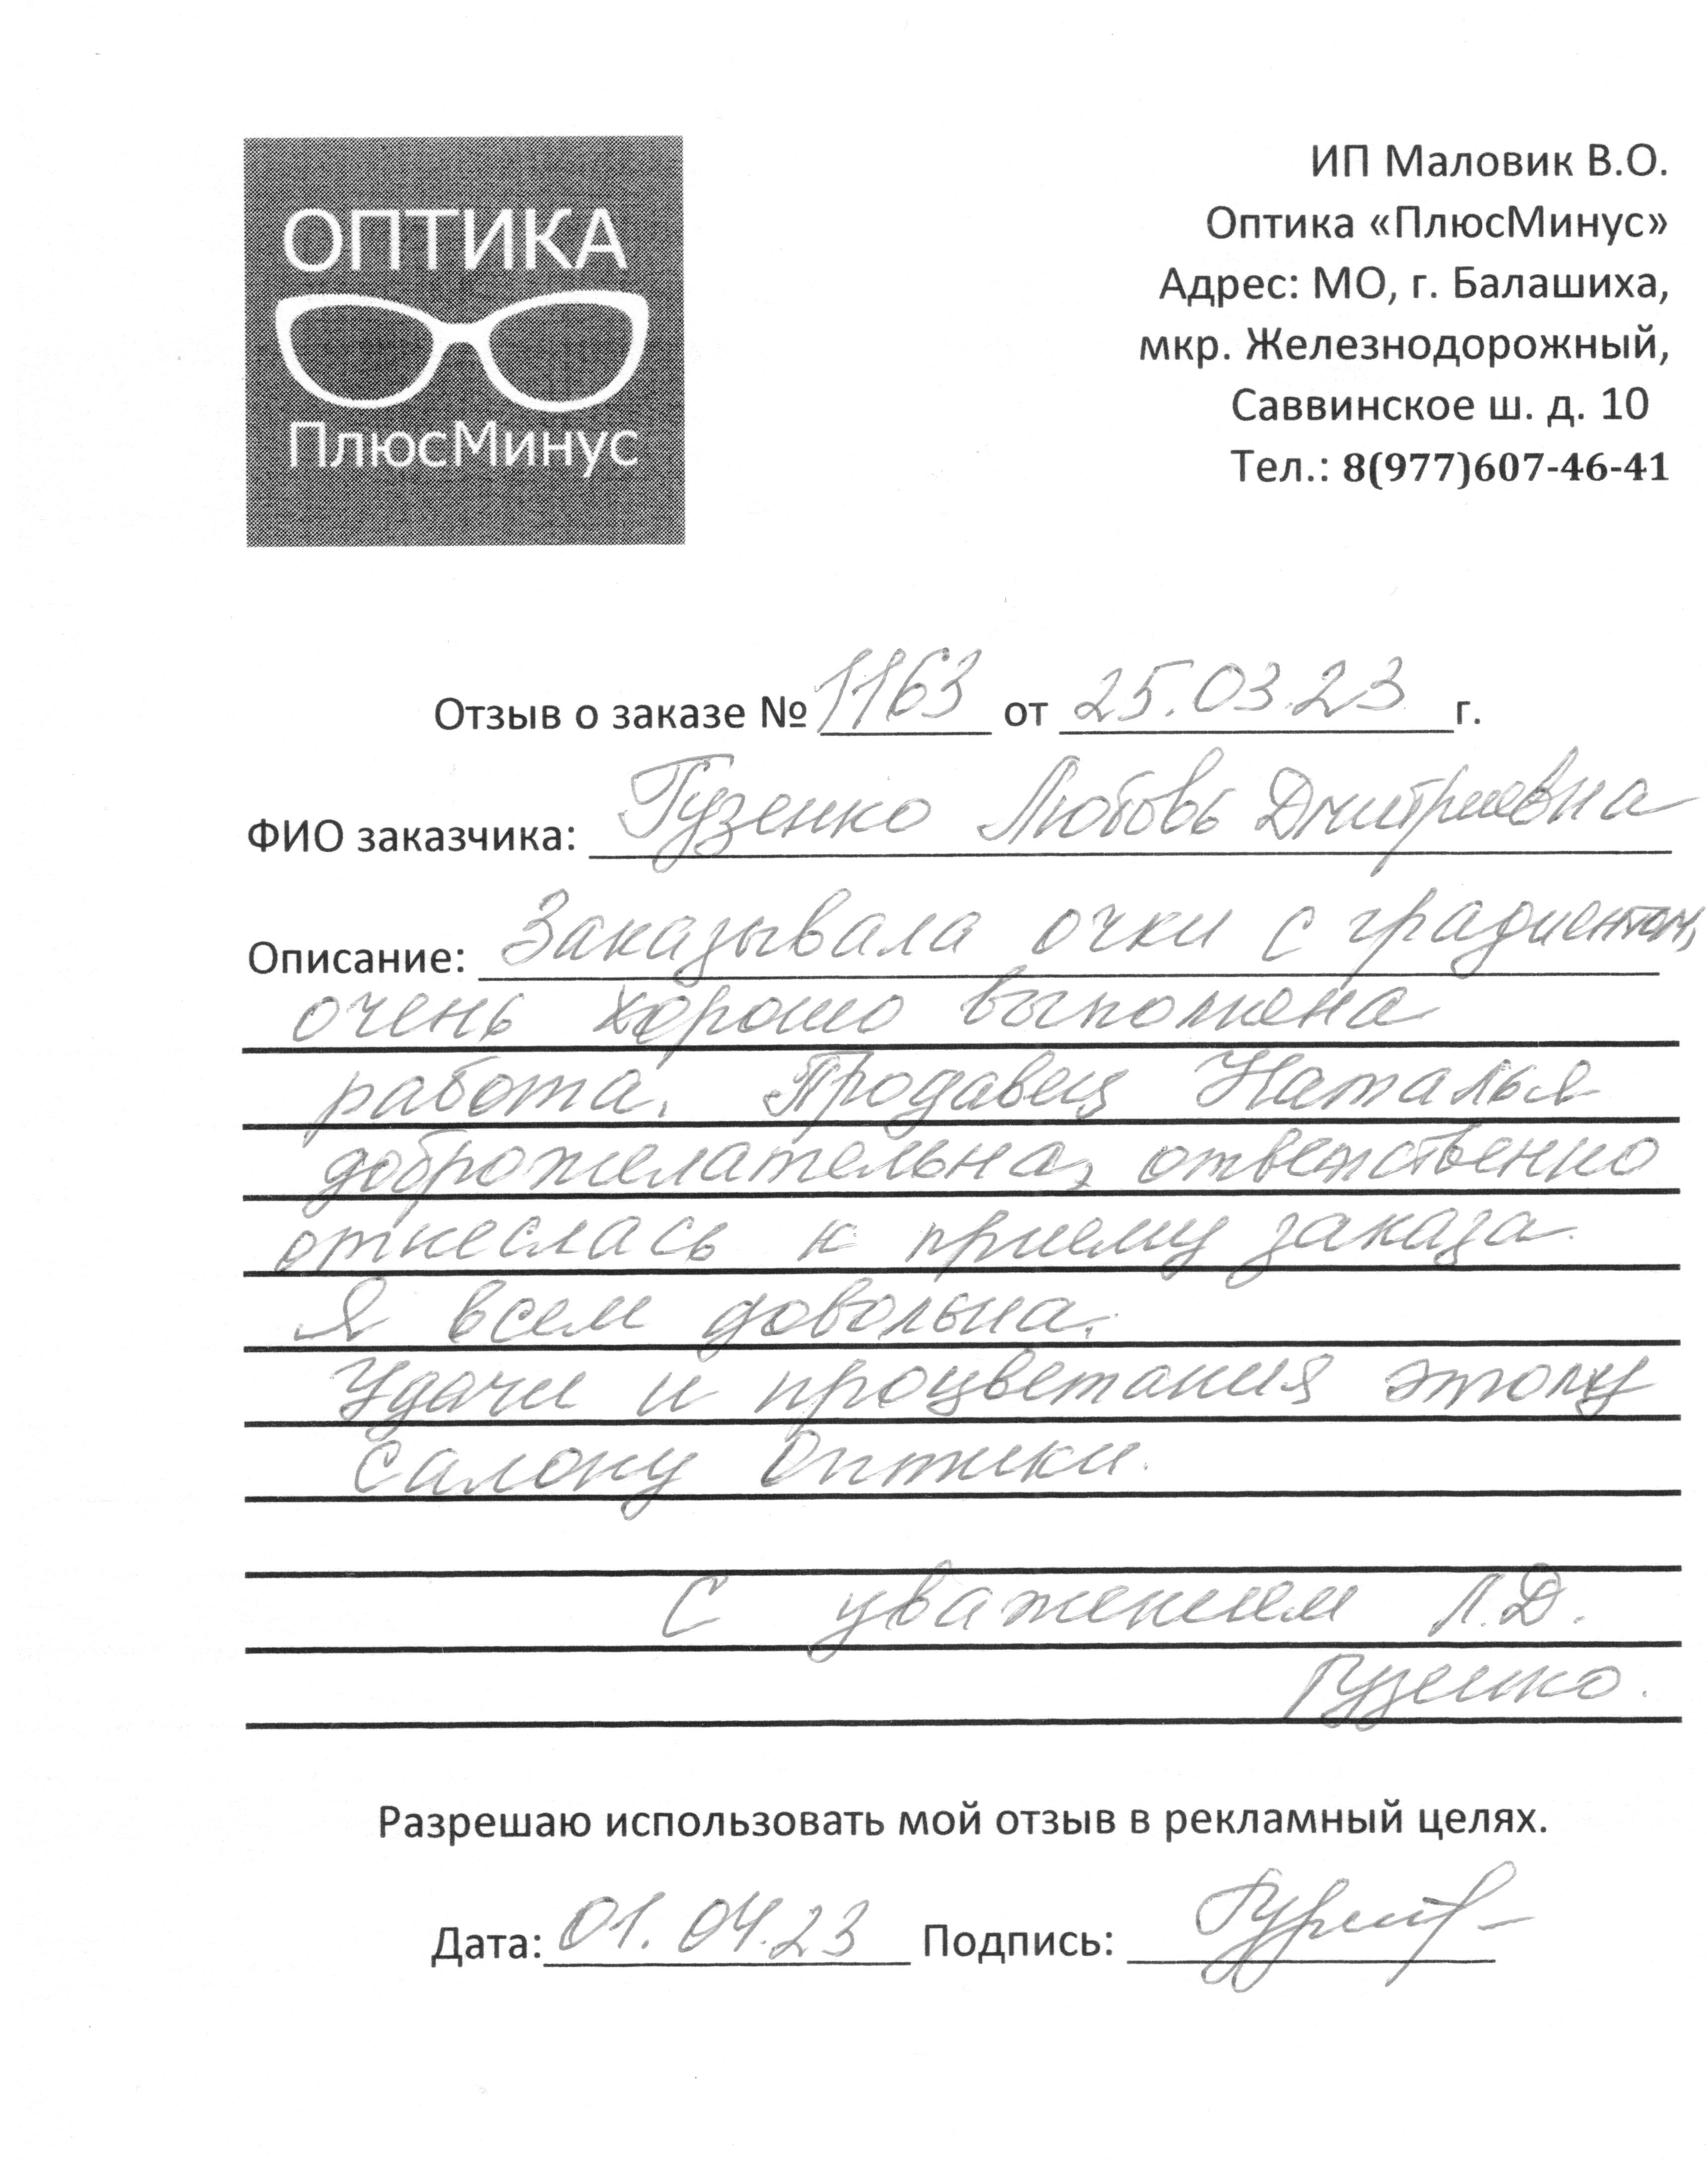 ОПТИКА
ПлюсМинус
ИП Маловик В.О.
Оптика «ПлюсМинус»
Адрес: МО, г. Балашиха,
мкр. Железнодорожный,
Саввинское ш. д. 10
Тел.: 8(977)607-46-41
Отзыв о заказе № 1163 от 25.03.23 г.
ФИО заказчика: Гузенко Любовь Дмитриевна
Описание: Заказывала очки с градиентом,
очень хорошо выполнена
работа. Продавец Наталья
доброжелательна, ответственно
отнеслась к приему заказа.
Я всем довольна.
Удачи и процветания этому
салону Оптики.
С уважением Л.Д.
Гузенко.
Разрешаю использовать мой отзыв в рекламный целях.
Дата: 01.04.23 Подпись: